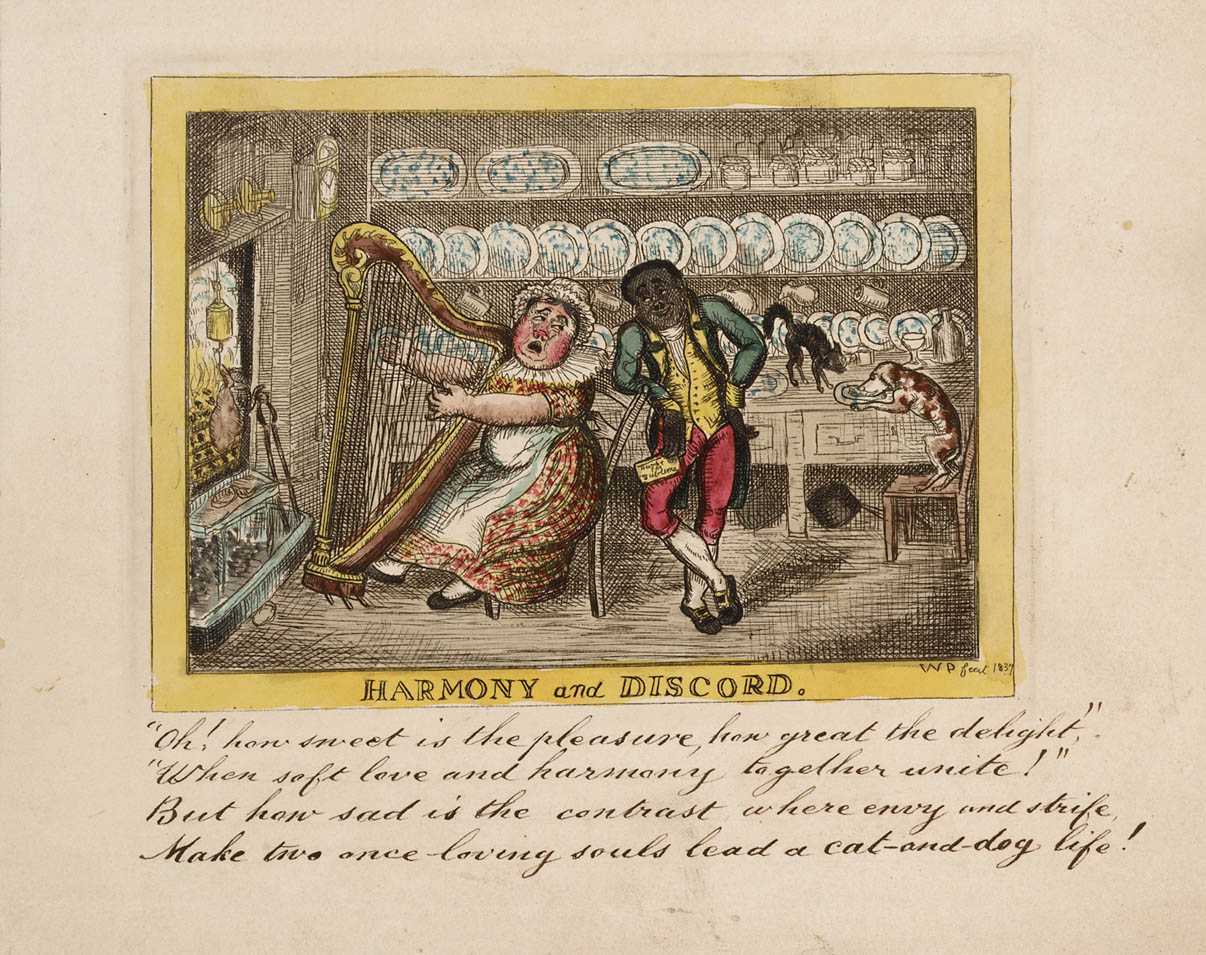 W P fecit 1837
HARMONY and DISCORD.
"Oh! how sweet is the pleasure, how great the delight,"
"When soft love and harmony together unite!"
But how sad is the contrast where envy and strife,
Make two once-loving souls lead a cat-and-dog life!